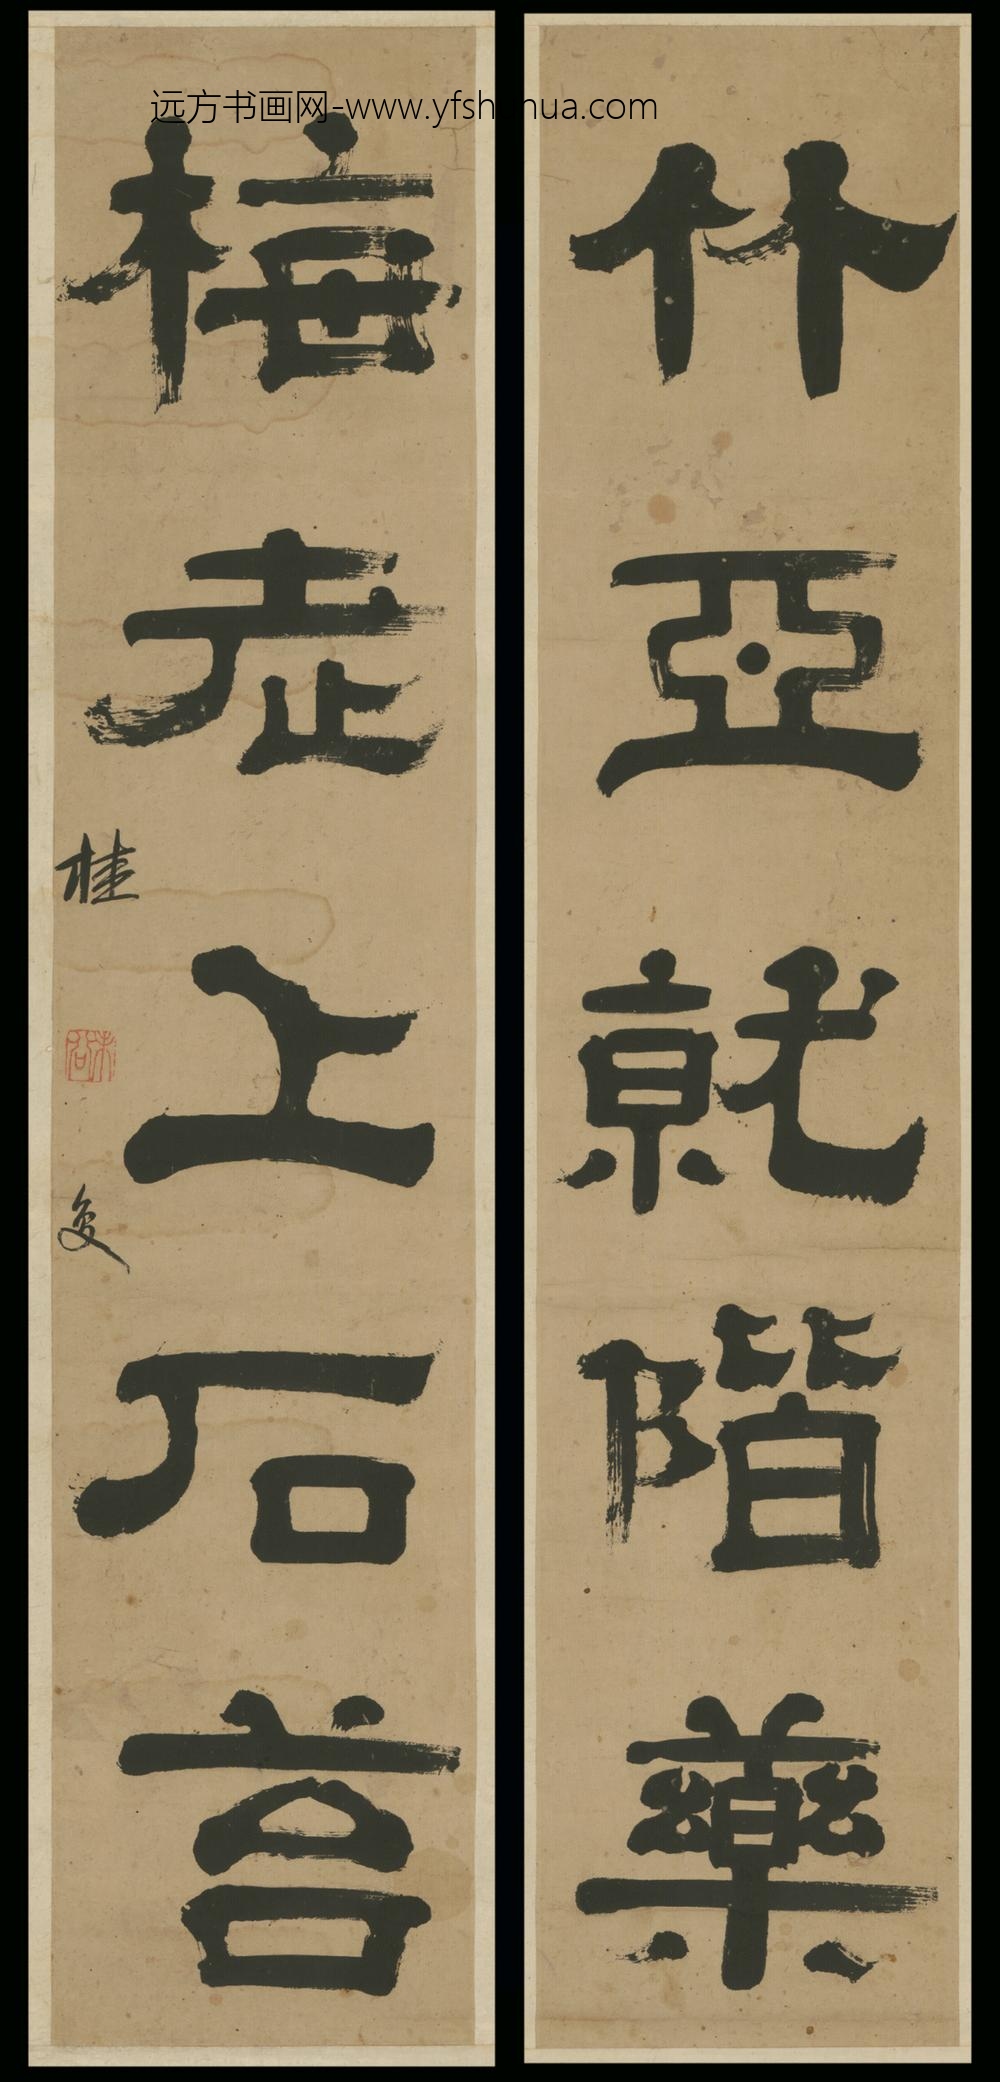 远方书画网-www.yfshuhua.com
竹亞就階藥
梅老上石苔
桂
未谷